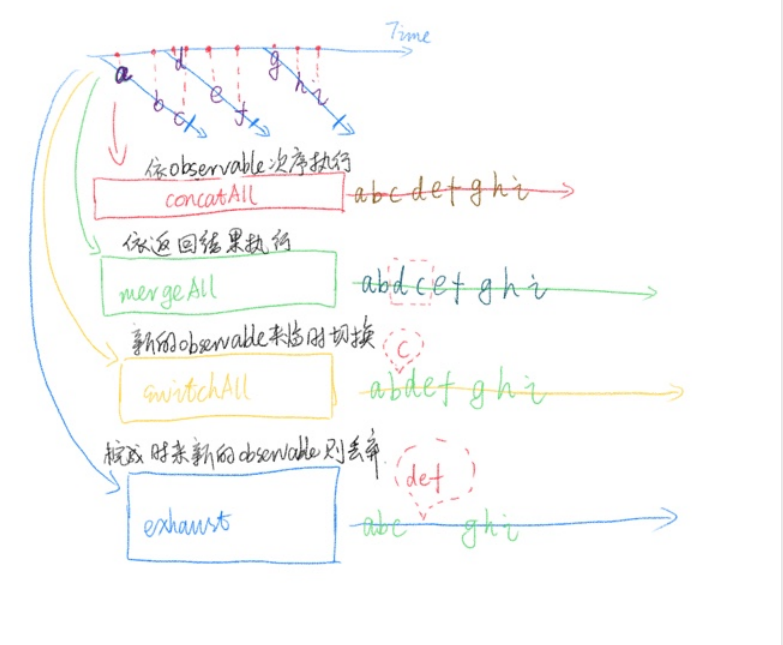 Time
a
b
c
d
e
f
g
h
i
依observable次序执行
concatAll
abcdefghi
依返回结果执行
mergeAll
abdcefghi
新的observable来临时切换
c
switchAll
abdefghi
时来新的observable则丢弃
def
exhaust
abc ghi